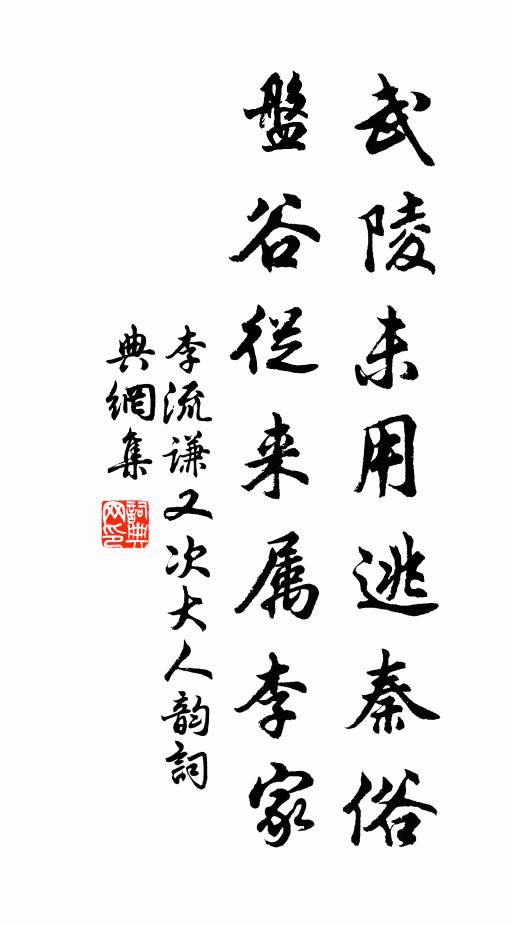 武陵未用逃秦俗
盤谷從来属李家
李流谦又次大人韵詞
典網集
詞典
网印